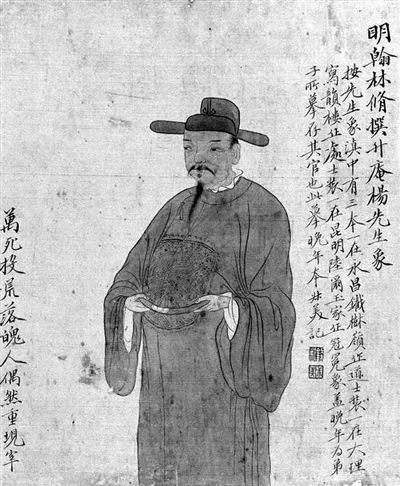 明翰林脩撰升庵楊先生象
按先生象滇中有三本一在永昌鐵樹嶺作道士裝一在大理
寫韻樓作處士裝一在昆明陸爾玉家作冠冕象蓋晚年為弟
子所摹存其官也此摹晚年本記
萬死投荒落魄人偶然重現宰